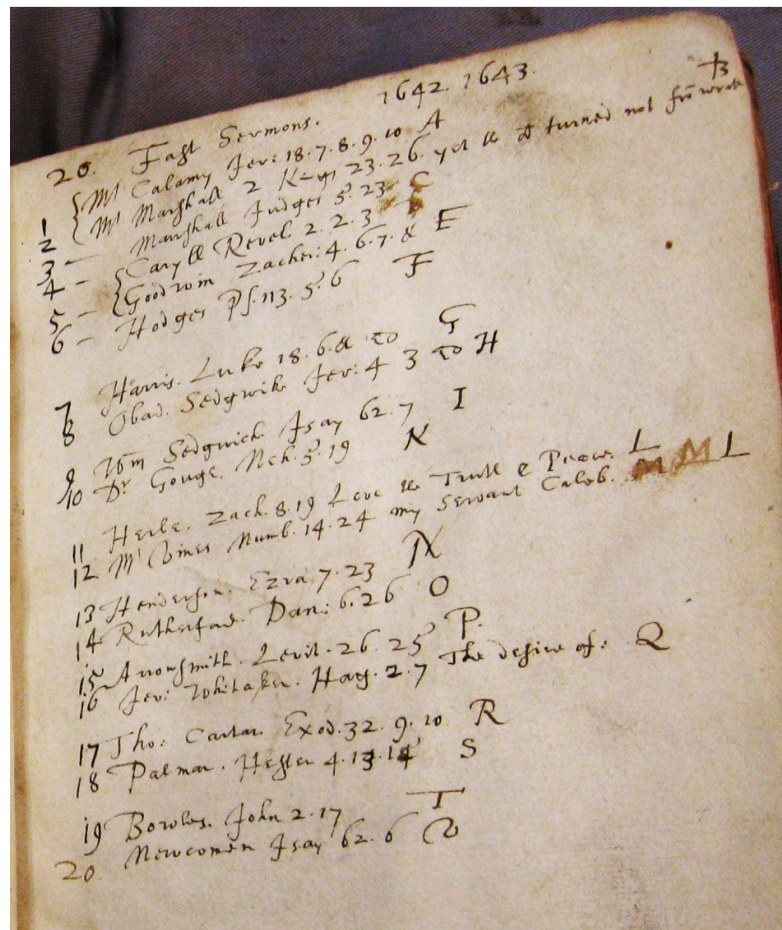 20. Fast Sermons. 1642. 1643.
1 { Mr Calamy Jer: 18. 7. 8. 9. 10 A
2 { Mr Marshall 2 Kings 23. 26. yet the turned not frō wrath
3 - Marshall Judges 5. 23 C
4 - { Caryll Revel. 2. 2. 3
5 - { Goodwin Zacher: 4. 6. 7. & E
6 - Hodges Ps. 113. 5. 6 F
7 Harris. Luke 18. 6. & G
8 Obad. Sedgwike Jer: 4 3 H
9 Wm Sedgwick Isay 62. 7 I
10 Dr Gouge. Neh. 5. 19 K
11 Herle. Zach. 8. 19 Love the Truth & Peace. L
12 Mr Vines Numb. 14. 24 my Servant Caleb. M M L
13 Henderson. Ezra. 7. 23 N
14 Rutherford. Dan: 6. 26 O
15 Arrowsmith. Levit. 26. 25 P.
16 Jer: Whitaker. Hag. 2. 7 The desire of: Q
17 Tho: Cartar. Exod. 32. 9. 10 R
18 Palmar. Hester 4. 13. 14 S
19 Bowles. John 2. 17 T
20. Newcomen Isay 62. 6